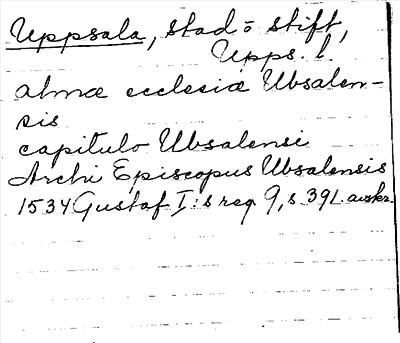 Uppsala, stad o stift,
Upps. l.
almæ ecclesiæ Ubsalen-
sis
capitulo Ubsalensi
Archi Episcopus Ubsalensis
1534 Gustaf I:s reg 9, s 391. avskr.